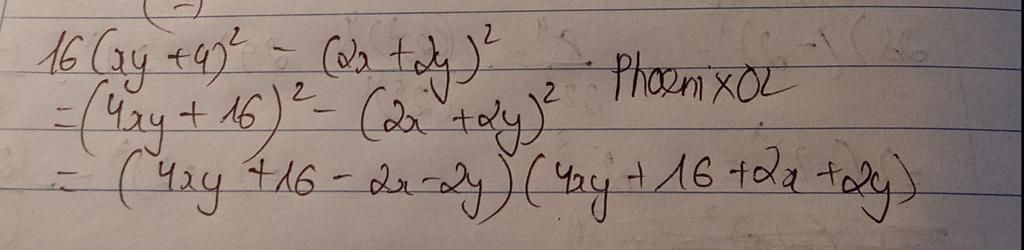 (-)
16(xy+4)² - (2x+2y)²
=(4xy+16)² - (2x+2y)² PhoenixOL
= (4xy+16-2x-2y)(4xy+16+2x+2y)